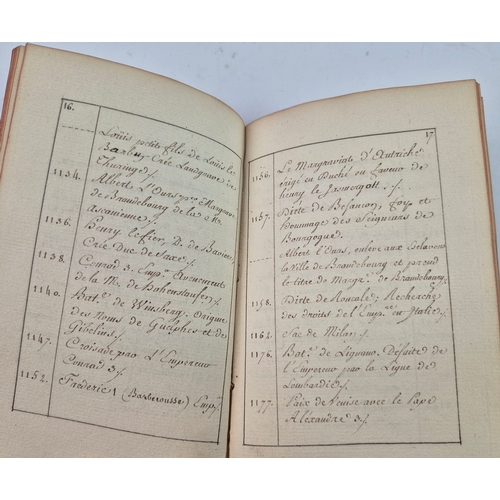 16.
Loüis petits fils de Loüis le
Barbu, Crée Landgrave de
Thuringe
1134. Albert l'Ours, pr. Margrave
de Brandebourg de la Mn
ascanienne
1136. Henry le fier, D. de Baviere
Crée Duc de Saxe
1138. Conrad 3. Empr. Avenement
de la M. de Hohenstaufen
1140. Batle. de Winsberg, Origine
des Noms de Guelphes et de
Gibelins
1147. Croisade par l'Empereur
Conrad 3
1152. Frederic 1 (Barberousse) Empr.
17
1156. Le Margraviat d'Autriche
érigé en Duché en faveur de
henry le Jasmergott
1157. Diette de Besançon, foy et
hommage des Seigneurs de
Bourgogne
Albert l'Ours, enleve aux Esclavons
la Ville de Brandebourg et prend
le titre de Margr. de Brandebourg
1158. Diette de Roncale, Recherche
des droits de l'Empr. en Italie
1162. Sac de Milan
1176. Batle. de Lignano, Défaite de
l'Empereur par la Ligue de
Lombardie
1177. Paix de Venise avec le Pape
Alexandre 3